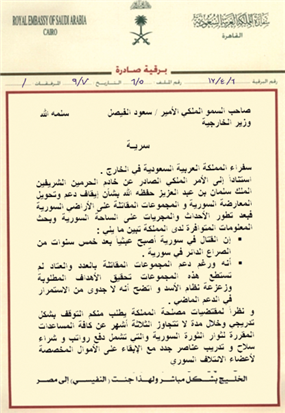 ROYAL EMBASSY OF SAUDI ARABIA
CAIRO
سفارة المملكة العربية السعودية
القاهرة
برقية صادرة
رقم البرقية ١٧/٤/٦ رقم الملف ٦/٥ التاريخ ٩/٧ المرفقات /
صاحب السمو الملكي الأمير / سعود الفيصل سلمه الله
وزير الخارجية
سرية
سفراء المملكة العربية السعودية في الخارج .
استنادا إلى الأمر الملكي الصادر عن خادم الحرمين الشريفين
الملك سلمان بن عبد العزيز حفظه الله بشأن إيقاف دعم وتحويل
المعارضة السورية و المجموعات المقاتلة على الأراضي السورية
فبعد تطور الأحداث والمجريات على الساحة السورية وبحث
المعلومات المتوافرة لدى المملكة تبين ما يلي :
إن القتال في سورية أصبح عبثيا بعد خمس سنوات من
الصراع الدائر في سورية .
أنه ورغم دعم المجموعات المقاتلة بالعدد والعتاد لم
تستطع هذه المجموعات تحقيق الأهداف المطلوبة
وزعزعة نظام الأسد و اتضح أنه لا جدوى من الاستمرار
في الدعم الماضي .
و نظرا لمقتضيات مصلحة المملكة يطلب منكم التوقف بشكل
تدريجي وخلال مدة لا تتجاوز الثلاثة أشهر عن كافة المساعدات
المقررة لثوار الثورة السورية والتي تشمل دفع رواتب و شراء
سلاح و تدريب عناصر جدد مع الإبقاء على الأموال المخصصة
لأعضاء الائتلاف السوري
الخليج بشكل مباشر ولهذا جئت (النفيسي) إلى مصر